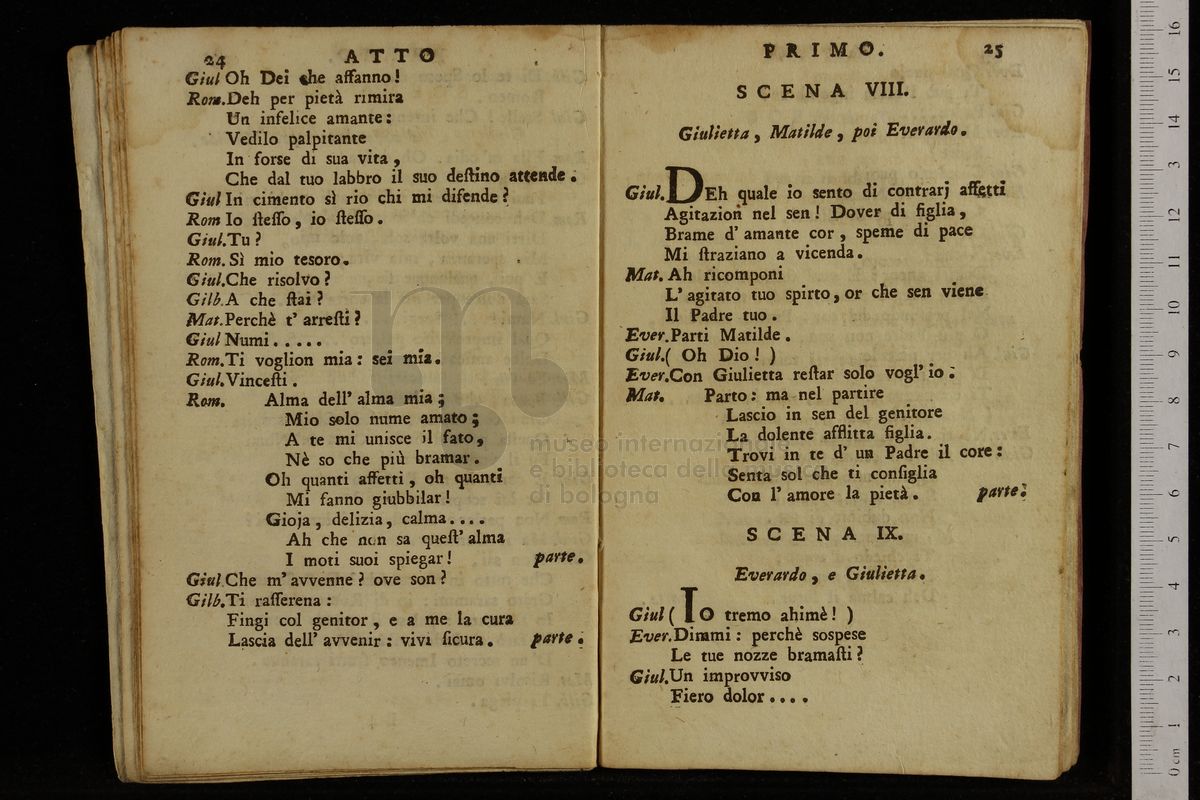 24 ATTO
Giul Oh Dei che affanno!
Rom. Deh per pietà rimira
Un infelice amante:
Vedilo palpitante
In forse di sua vita,
Che dal tuo labbro il suo deſtino attende.
Giul In cimento sì rio chi mi difende?
Rom Io ſteſſo, io ſteſſo.
Giul. Tu?
Rom. Sì mio tesoro.
Giul. Che risolvo?
Gilb. A che ſtai?
Mat. Perchè t' arreſti?
Giul Numi.....
Rom. Ti voglion mia: sei mia.
Giul. Vinceſti.
Rom. Alma dell' alma mia;
Mio solo nume amato;
A te mi unisce il fato,
Nè so che più bramar.
Oh quanti affetti, oh quanti
Mi fanno giubbilar!
Gioja, delizia, calma....
Ah che non sa queſt' alma
I moti suoi spiegar! parte.
Giul Che m' avvenne? ove son?
Gilb. Ti rafferena:
Fingi col genitor, e a me la cura
Lascia dell' avvenir: vivi ſicura. parte.
PRIMO. 25
SCENA VIII.
Giulietta, Matilde, poi Everardo.
Giul. DEh quale io sento di contrarj affetti
Agitazion nel sen! Dover di figlia,
Brame d' amante cor, speme di pace
Mi ſtraziano a vicenda.
Mat. Ah ricomponi
L' agitato tuo spirto, or che sen viene
Il Padre tuo.
Ever. Parti Matilde.
Giul. ( Oh Dio! )
Ever. Con Giulietta reſtar solo vogl' io.
Mat. Parto: ma nel partire
Lascio in sen del genitore
La dolente afflitta figlia.
Trovi in te d' un Padre il core:
Senta sol che ti conſiglia
Con l' amore la pietà. parte.
SCENA IX.
Everardo, e Giulietta.
Giul ( IO tremo ahimè! )
Ever. Dimmi: perchè sospese
Le tue nozze bramaſti?
Giul. Un improvviso
Fiero dolor....
museo internazionale
e biblioteca della musica
di bologna
0 cm 1 2 3 4 5 6 7 8 9 10 11 12 13 14 15 16